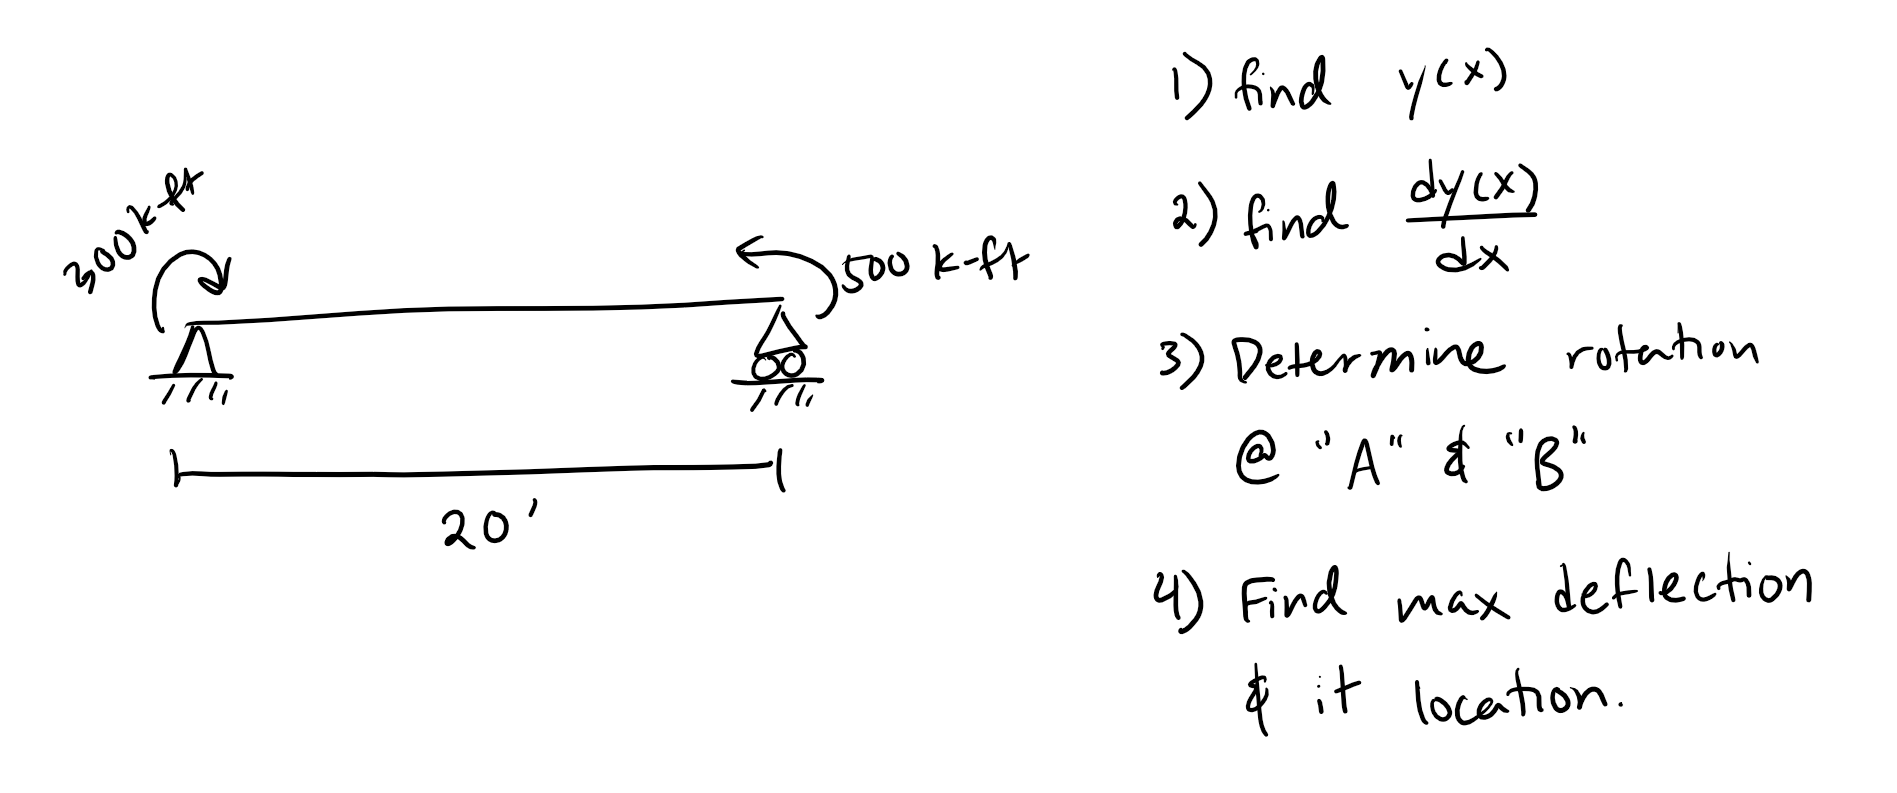 300 k-ft
500 k-ft
20'
1) find y(x)
2) find dy(x)
dx
3) Determine rotation
@ "A" & "B"
4) Find max deflection
& it location.